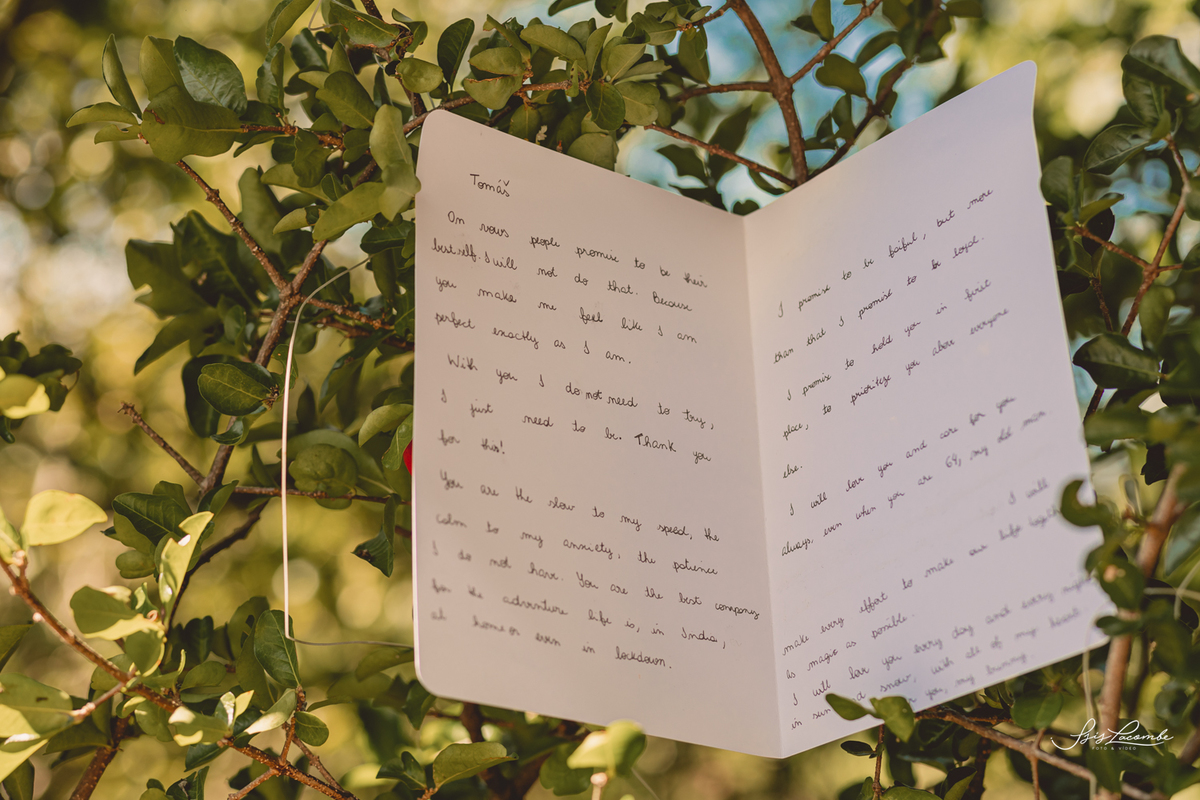 Tomáš
On vows people promise to be their
best self. I will not do that. Because
you make me feel like I am
perfect exactly as I am.
With you I do not need to try,
I just need to be. Thank you
for this!
You are the slow to my speed, the
calm to my anxiety, the patience
I do not have. You are the best company
for the adventure life is, in India,
at home or even in lockdown.
I promise to be faiful, but more
than that I promise to be loyal.
I promise to hold you in first
place, to prioritize you above everyone
else.
I will love you and care for you
always, even when you are 64, my old man.
I will
make every effort to make our life
as magic as posible.
I will love you every day and every night
in sun snow, with all of my heart
you, my bunny.
Isis Lacombe
FOTO & VIDEO